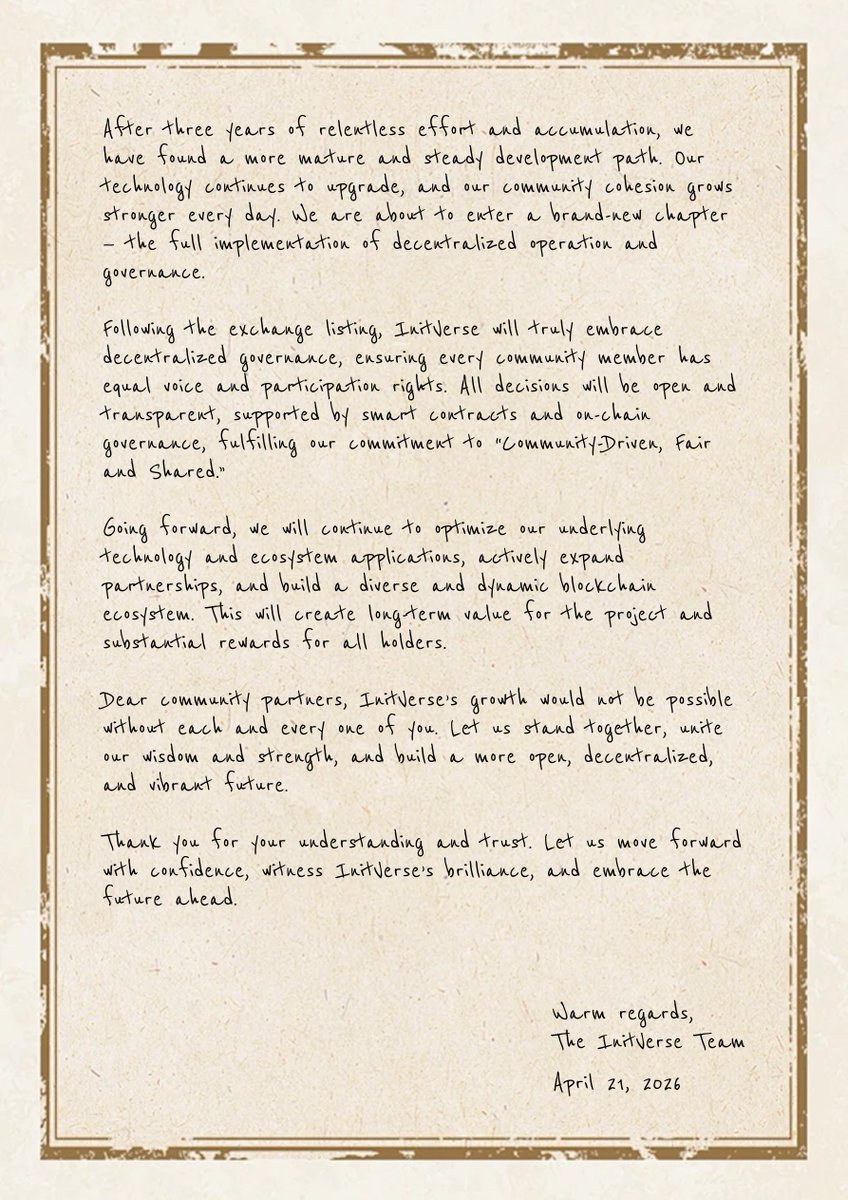 After three years of relentless effort and accumulation, we
have found a more mature and steady development path. Our
technology continues to upgrade, and our community cohesion grows
stronger every day. We are about to enter a brand-new chapter
– the full implementation of decentralized operation and
governance.
Following the exchange listing, InitVerse will truly embrace
decentralized governance, ensuring every community member has
equal voice and participation rights. All decisions will be open and
transparent, supported by smart contracts and on-chain
governance, fulfilling our commitment to "Community-Driven, Fair
and Shared."
Going forward, we will continue to optimize our underlying
technology and ecosystem applications, actively expand
partnerships, and build a diverse and dynamic blockchain
ecosystem. This will create long-term value for the project and
substantial rewards for all holders.
Dear community partners, InitVerse's growth would not be possible
without each and every one of you. Let us stand together, unite
our wisdom and strength, and build a more open, decentralized,
and vibrant future.
Thank you for your understanding and trust. Let us move forward
with confidence, witness InitVerse's brilliance, and embrace the
future ahead.
Warm regards,
The InitVerse Team
April 21, 2026